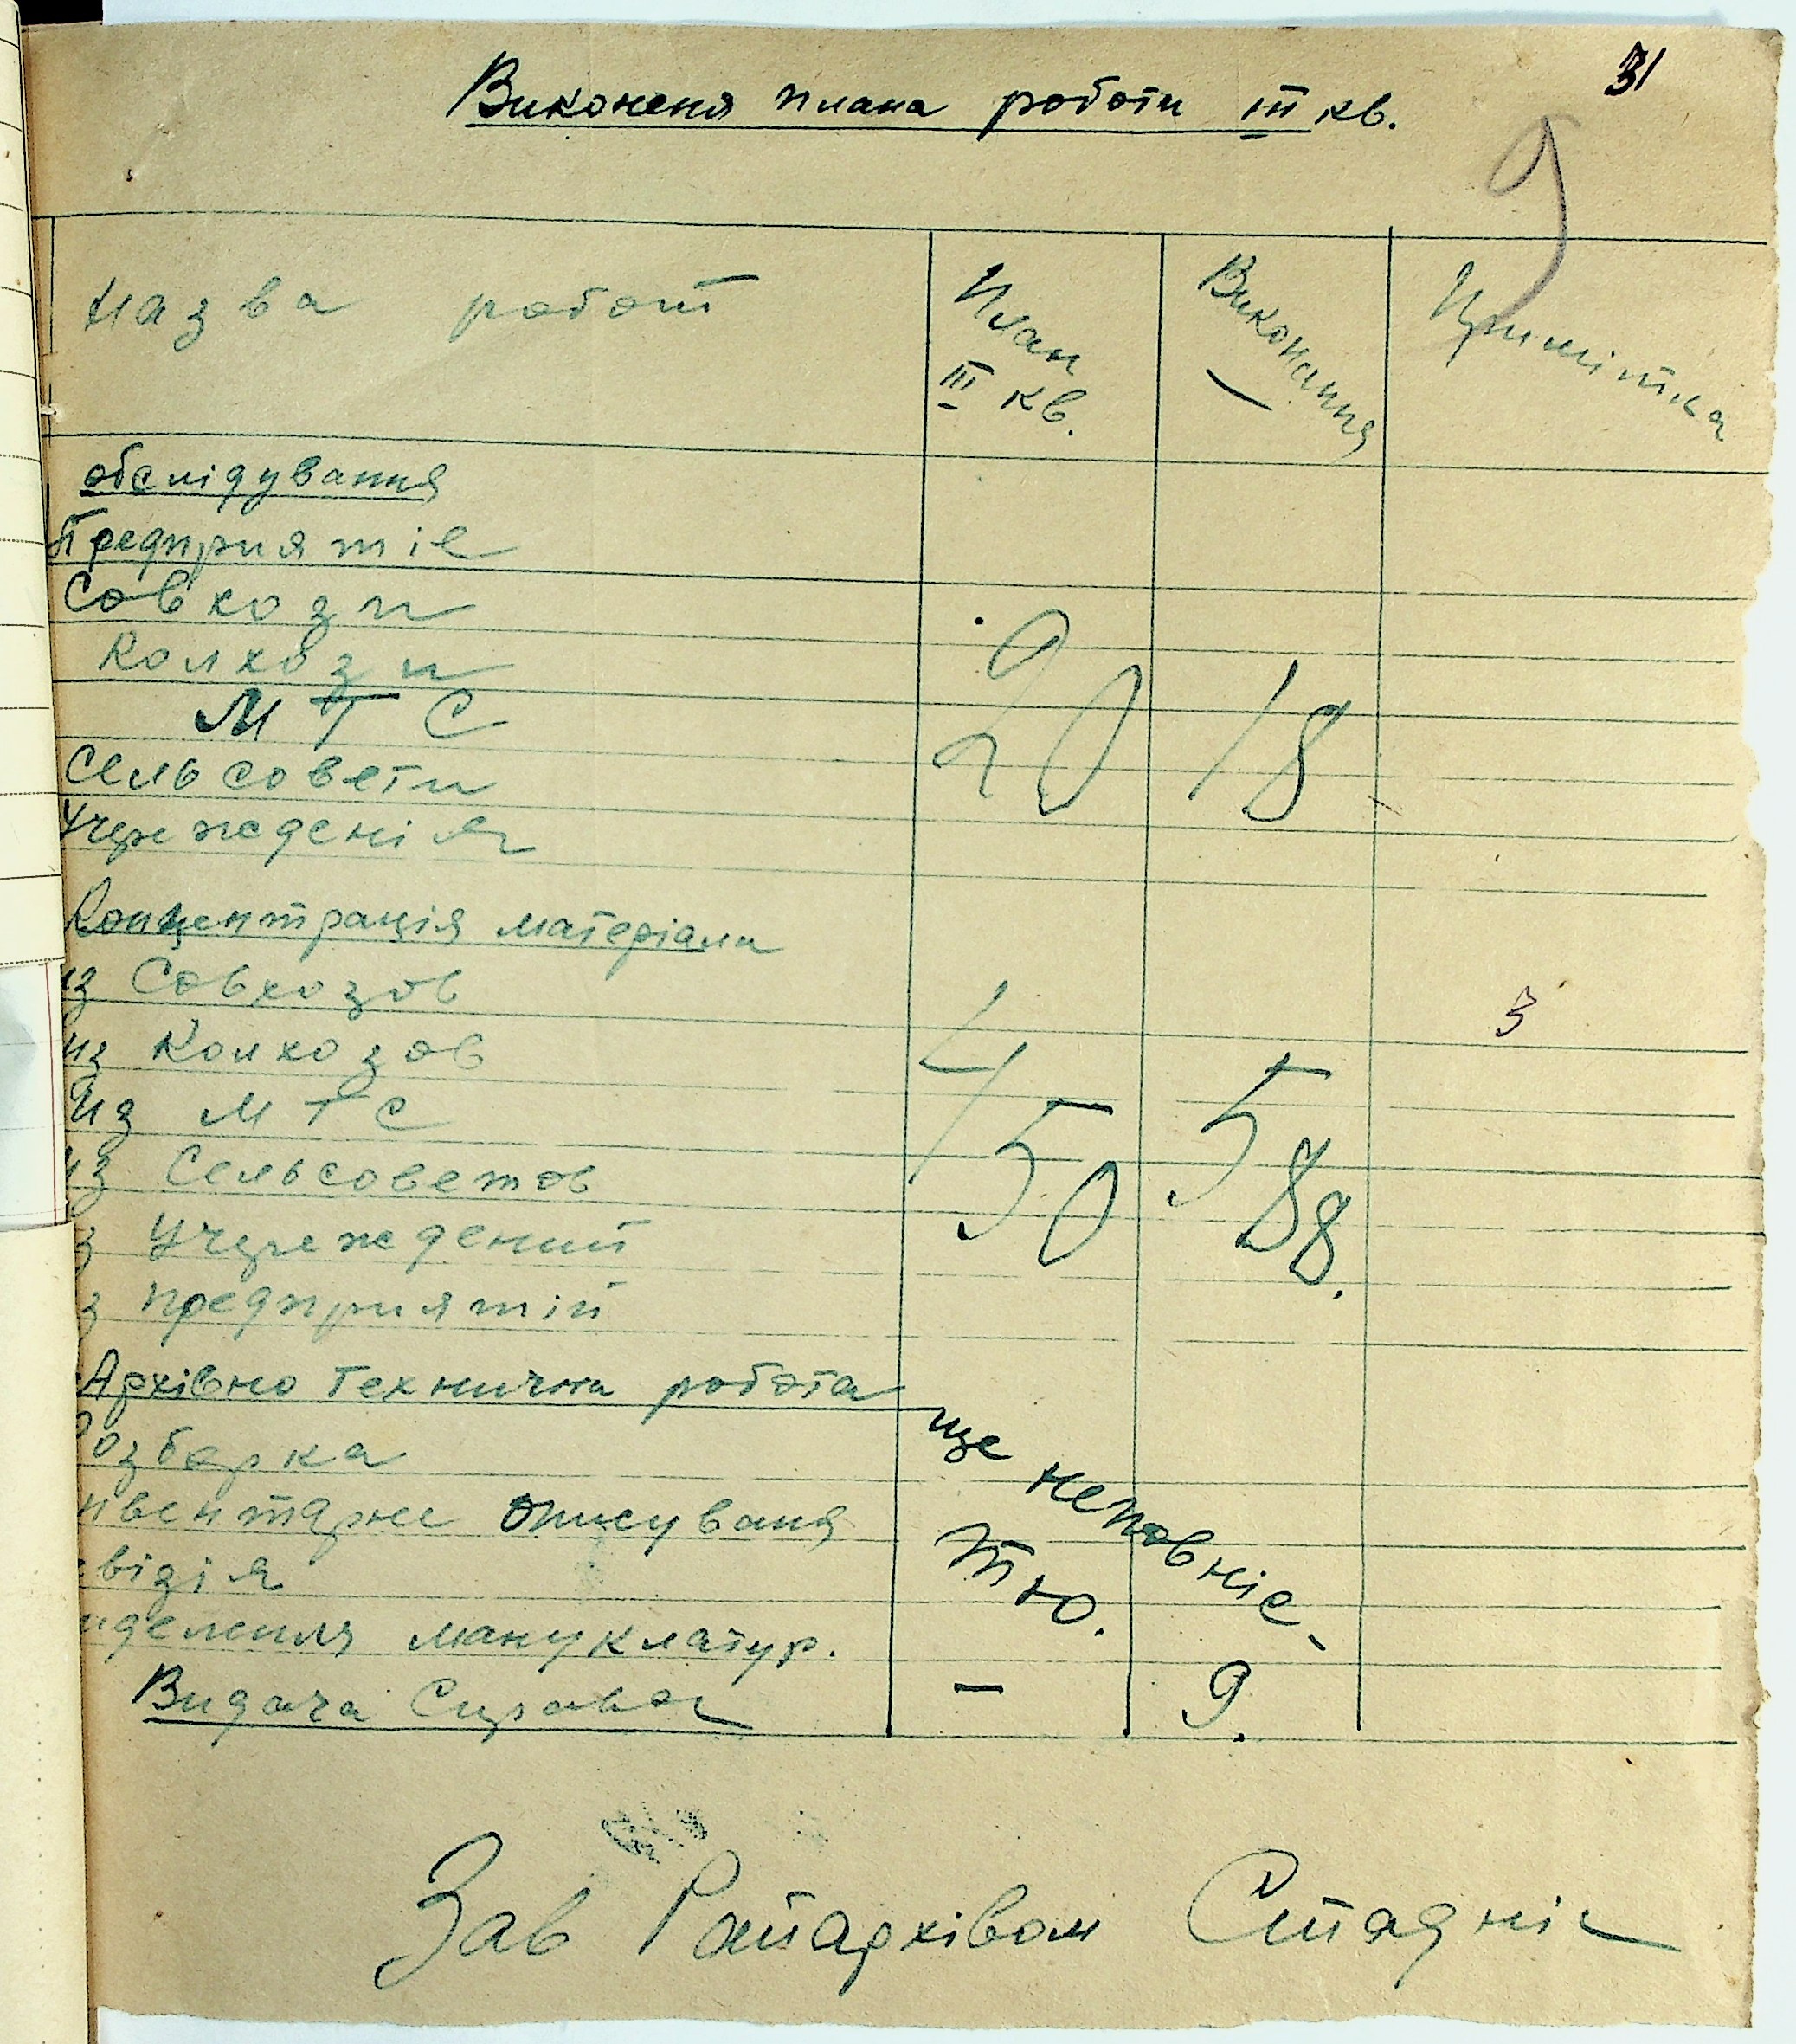 31
Виконеня плана роботи III кв.
9
Назва робот План III кв. Виконання Примітка
обслідування
Предприятіе
Совхози
Колхози
МТС 20 18
Сельсовети
Учрежденія
Концентрація матеріали
из Совхозов
3
из Колхозов
из МТС
из Сельсоветов 150 588.
з Учреждений
з предприятій
Архівно Технична робота
Розборка ще неповніс-
нвентарне описуваня тю.
евізія
иделення мануклатур.
Видача Справок — 9.
Зав Райархівом Стаднік